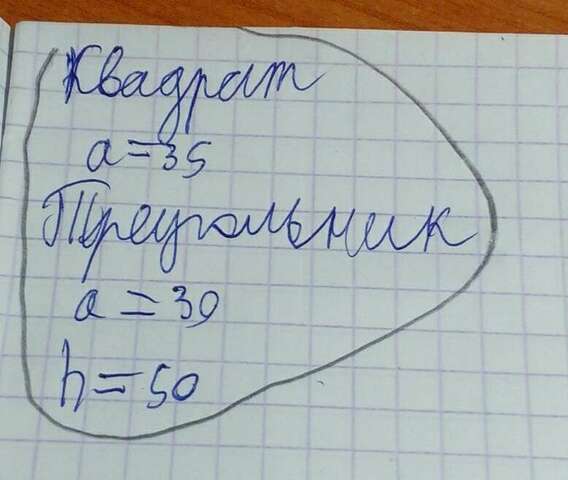 Квадрат
a = 35
Треугольник
a = 30
h = 50